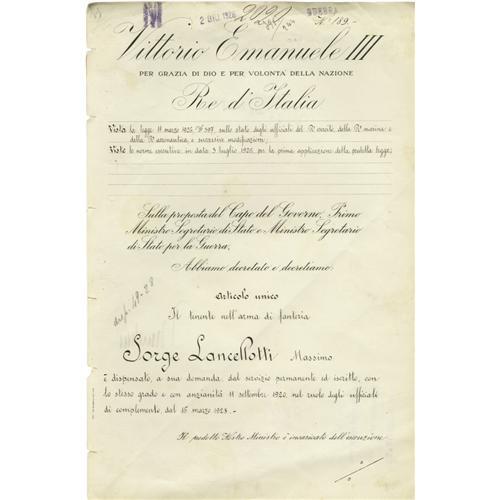 2 DIC 1928
GUERRA
N° 189.-
Vittorio Emanuele III
PER GRAZIA DI DIO E PER VOLONTÀ DELLA NAZIONE
Re d'Italia
Vista la legge 11 marzo 1926, N° 397, sullo stato degli ufficiali del R° esercito, della R° marina e
della R° aeronautica, e successive modificazioni;
Viste le norme esecutive in data 3 luglio 1926 per la prima applicazione della predetta legge;
Sulla proposta del Capo del Governo, Primo
Ministro Segretario di Stato e Ministro Segretario
di Stato per la Guerra;
Abbiamo decretato e decretiamo:
Articolo unico
Il tenente nell'arma di fanteria
Sorge Lancellotti Massimo
è dispensato, a sua domanda, dal servizio permanente ed iscritto, con
lo stesso grado e con anzianità 11 settembre 1920, nel ruolo degli ufficiali
di complemento, dal 16 marzo 1928.-
Il predetto Nostro Ministro è incaricato dell'esecuzione